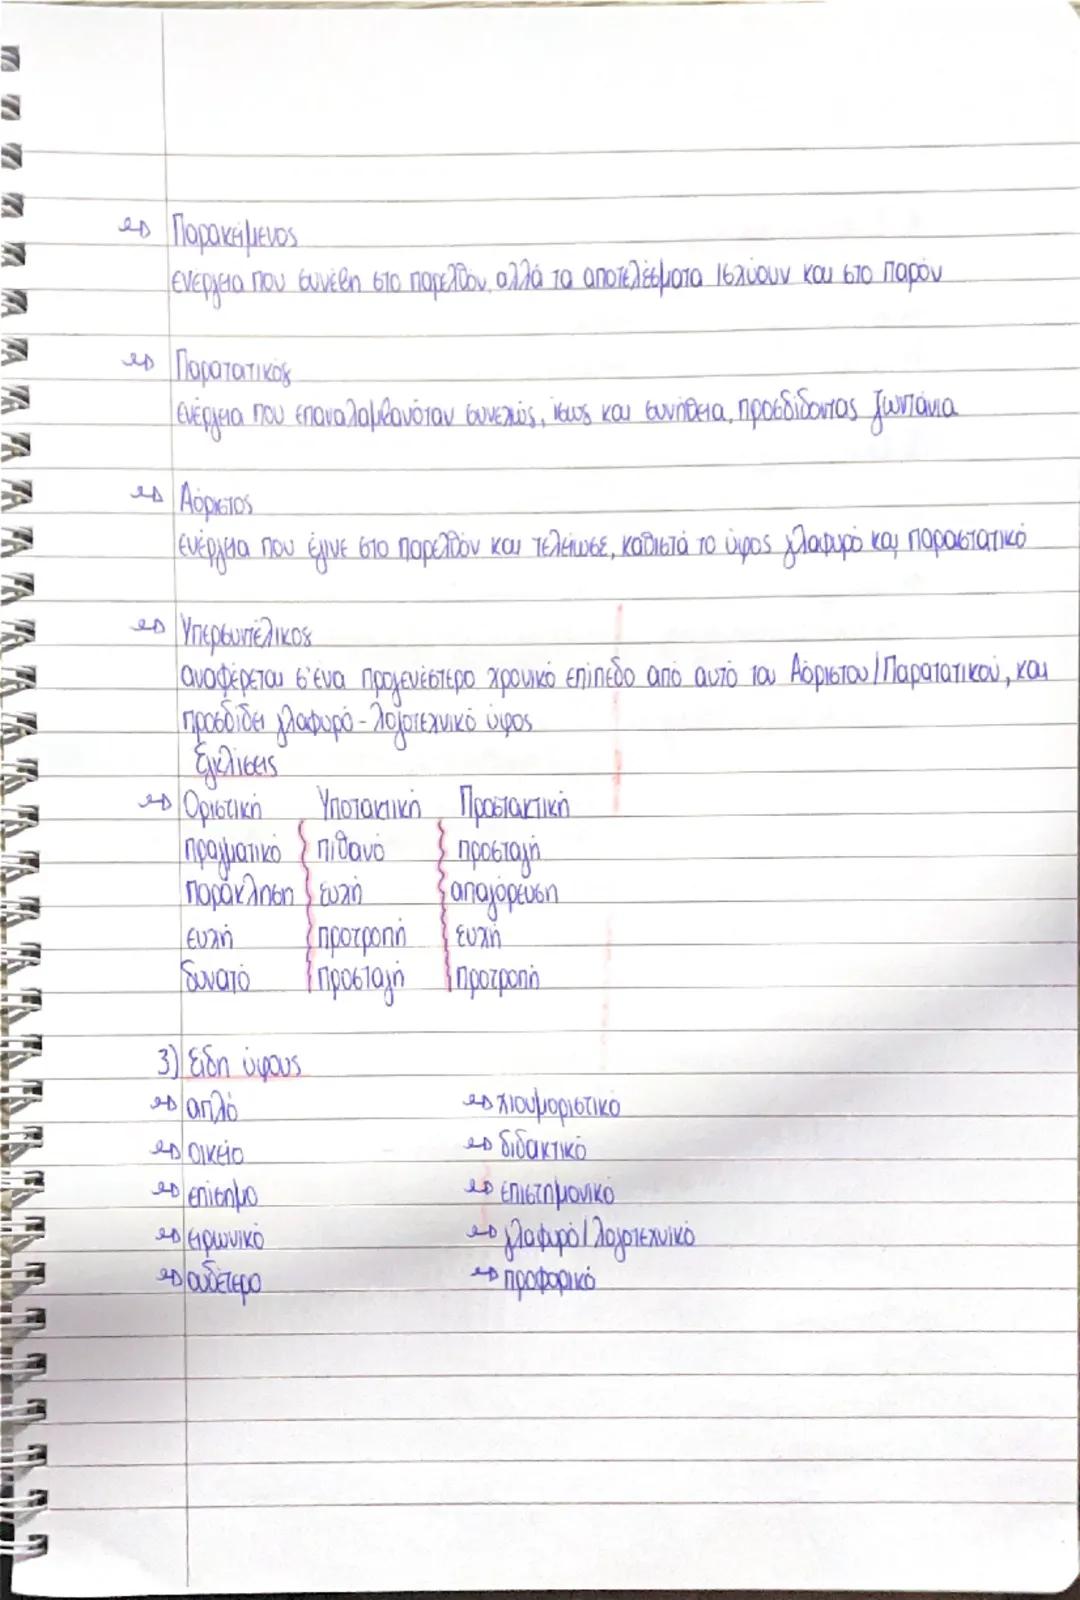 Παρακείμενος
ενέργεια που συνέβη στο παρελθόν, αλλά τα αποτελέσματα ισχύουν και στο παρόν
Παρατατικός
ενέργεια που επαναλαμβανόταν συνεχώς, ίσως και συνήθεια, προσδίδοντας ζωντάνια
Αόριστος
ενέργεια που έγινε στο παρελθόν και τελείωσε, καθιστά το ύφος γλαφυρό και παραστατικό
Υπερσυντέλικος
αναφέρεται σ'ένα προγενέστερο χρονικό επίπεδο από αυτό του Αόριστου/Παρατατικού, και
προσδίδει γλαφυρό - λογοτεχνικό ύφος
Εγκλίσεις
Οριστική Υποτακτική Προστακτική
πραγματικό πιθανό προσταγή
παράκληση ευχή απαγόρευση
ευχή προτροπή ευχή
δυνατό προσταγή προτροπή
3) Είδη ύφους
απλό χιουμοριστικό
οικείο διδακτικό
επίσημο επιστημονικό
ειρωνικό γλαφυρό/λογοτεχνικό
ουδέτερο προφορικό